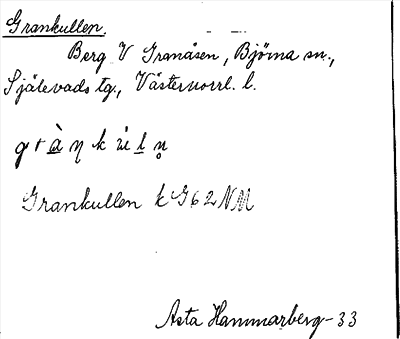 Grankullen.
Berg V Granåsen, Björna sn.,
Själevads tg., Västernorrl. l.
g r à ŋ k ù l n̥
Grankullen k G62NM
Asta Hammarberg-33